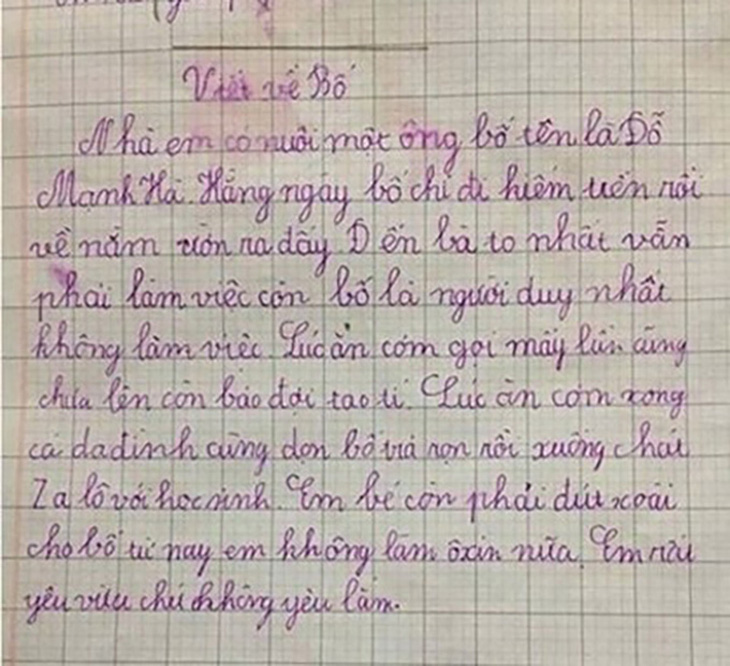 Viết về Bố
Nhà em có nuôi một ông bố tên là Đỗ
Mạnh Hà. Hằng ngày bố chỉ đi kiếm tiền rồi
về nằm ườn ra đấy Đ ến bà to nhất vẫn
phải làm việc còn bố là người duy nhất
không làm việc. Lúc ăn cơm gọi mấy lần cũng
chưa lên còn bảo đợi tao tí. Lúc ăn cơm xong
cả da dình cùng dọn bố vừa rọn rồi xuống chát
Za lô với học sinh. Em bé còn phải đút xoài
cho bố từ nay em không làm ôxin nữa. Em rất
yêu vừa chứ không yêu lắm.